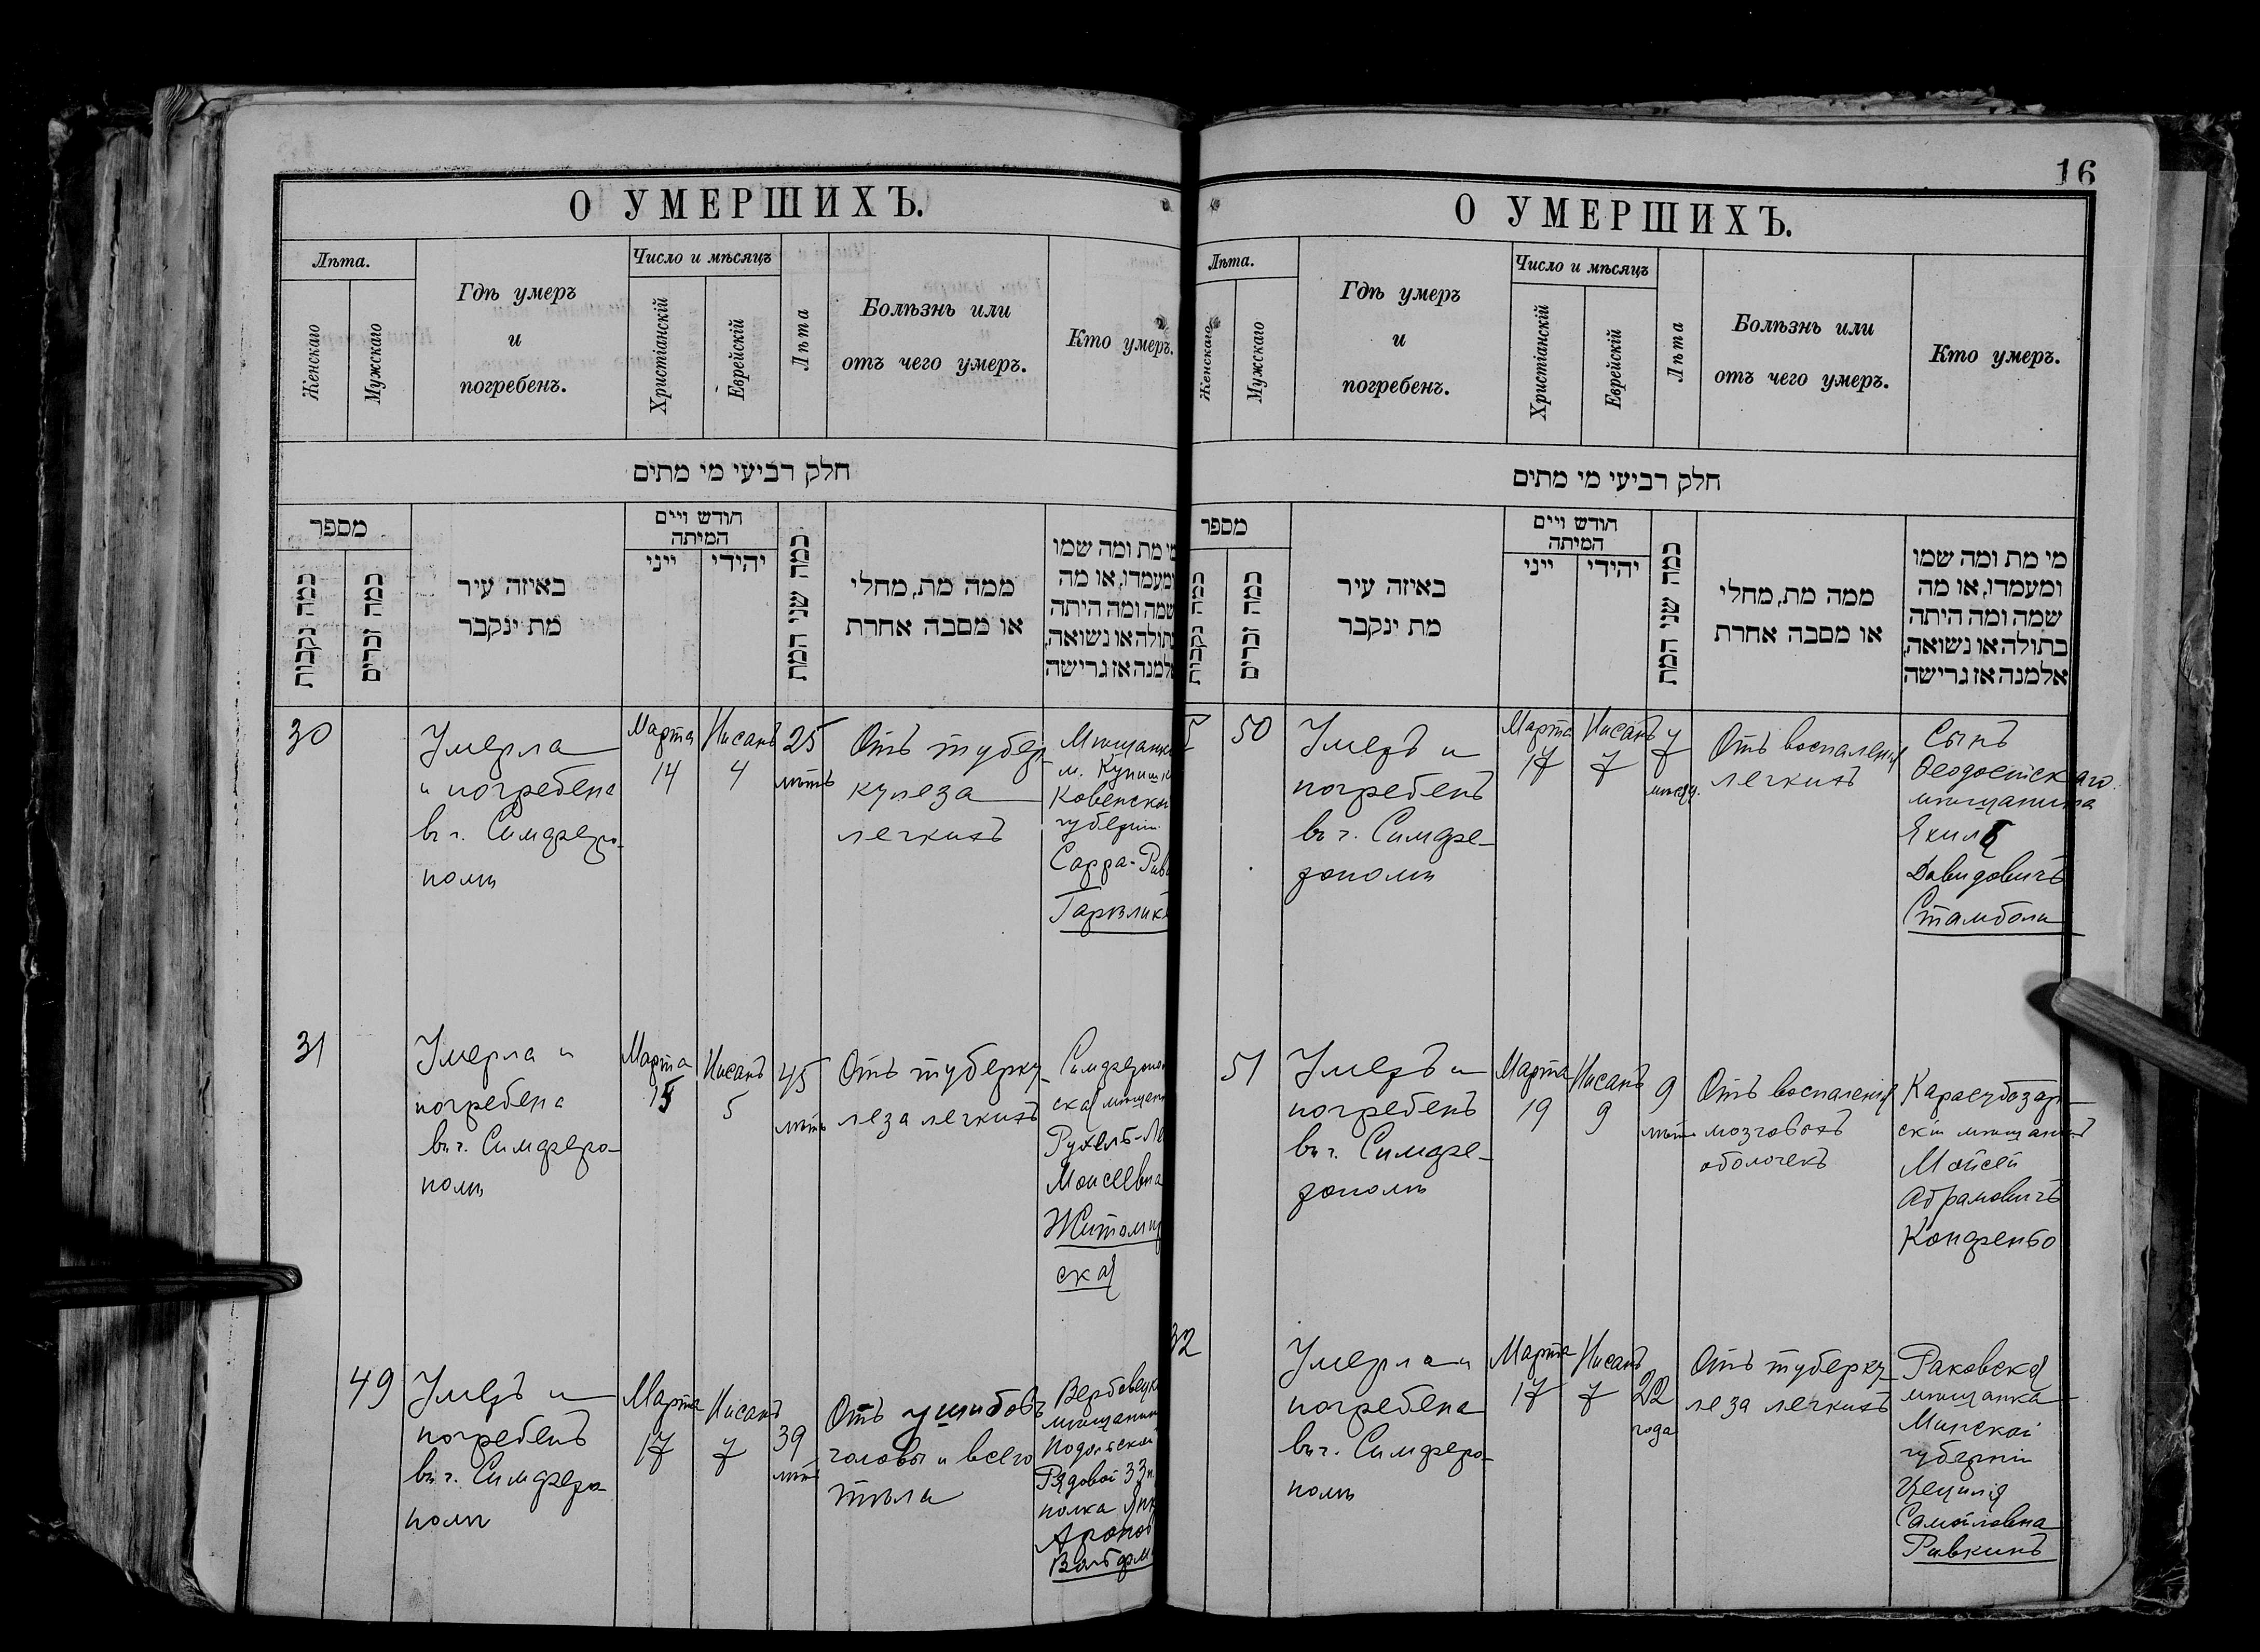 О УМЕРШИХЪ.
Лѣта.
Женскаго
Мужскаго
Гдѣ умеръ
и
погребенъ.
Число и мѣсяцъ
Христіанскій
Еврейскій
Лѣта
Болѣзнь или
отъ чего умеръ.
Кто умеръ.
חלק רביעי מי מתים
מספר
כמה נקבות
כמה זכרים
באיזה עיר
מת ינקבר
חודש ויים
המיתה
ייני
יהודי
כמה שני המת
ממה מת, מחלי
או מסבה אחרת
מי מת ומה שמו
ומעמדו, או מה
שמה ומה היתה
בתולה או נשואה,
אלמנה אז גרישה
30
Умерла
и погребена
въ г. Симферо-
полѣ
Марта
14
Нисанъ
4
25
лѣтъ
Отъ тубер-
кулеза
легкихъ
Мѣщанка
м.
Ковенской
губерніи
Сарра-
31
Умерла и
погребена
въ г. Симферо-
полѣ
Марта
15
Нисанъ
5
45
лѣтъ
Отъ туберку-
леза легкихъ
Симферополь-
ская
Рухель-
Моисеевна
Житомир
ская
49
Умеръ и
погребенъ
въ г. Симферо-
полѣ
Марта
17
Нисанъ
7
39
лѣтъ
Отъ ушибовъ
головы и всего
тѣла
Подольской
Рядовой 33
полка
16
О УМЕРШИХЪ.
Лѣта.
Женскаго
Мужскаго
Гдѣ умеръ
и
погребенъ.
Число и мѣсяцъ
Христіанскій
Еврейскій
Лѣта
Болѣзнь или
отъ чего умеръ.
Кто умеръ.
חלק רביעי מי מתים
מספר
כמה נקבות
כמה זכרים
באיזה עיר
מת ינקבר
חודש ויים
המיתה
ייני
יהודי
כמה שני המת
ממה מת, מחלי
או מסבה אחרת
מי מת ומה שמו
ומעמדו, או מה
שמה ומה היתה
בתולה או נשואה,
אלמנה אז גרישה
50
Умеръ и
погребенъ
въ г. Симфе-
рополѣ
Марта
17
Нисанъ
7
7
мѣсяц.
Отъ воспаленія
легкихъ
Сынъ
Ѳеодосійскаго
мѣщанина
Якиль
Давидовичъ
Стамболи
51
Умеръ и
погребенъ
въ г. Симфе-
рополѣ
Марта
19
Нисанъ
9
9
лѣтъ
Отъ воспаленія
мозговыхъ
оболочекъ
Карасубазар-
скій мѣщанинъ
Мойсей
Абрамовичъ
Конфенбо
32
Умерла и
погребена
въ г. Симферо-
полѣ
Марта
17
Нисанъ
7
22
года
Отъ туберку-
леза легкихъ
Раковская
мѣщанка
Минской
губерніи
Цецилія
Самойловна
Ривкинъ